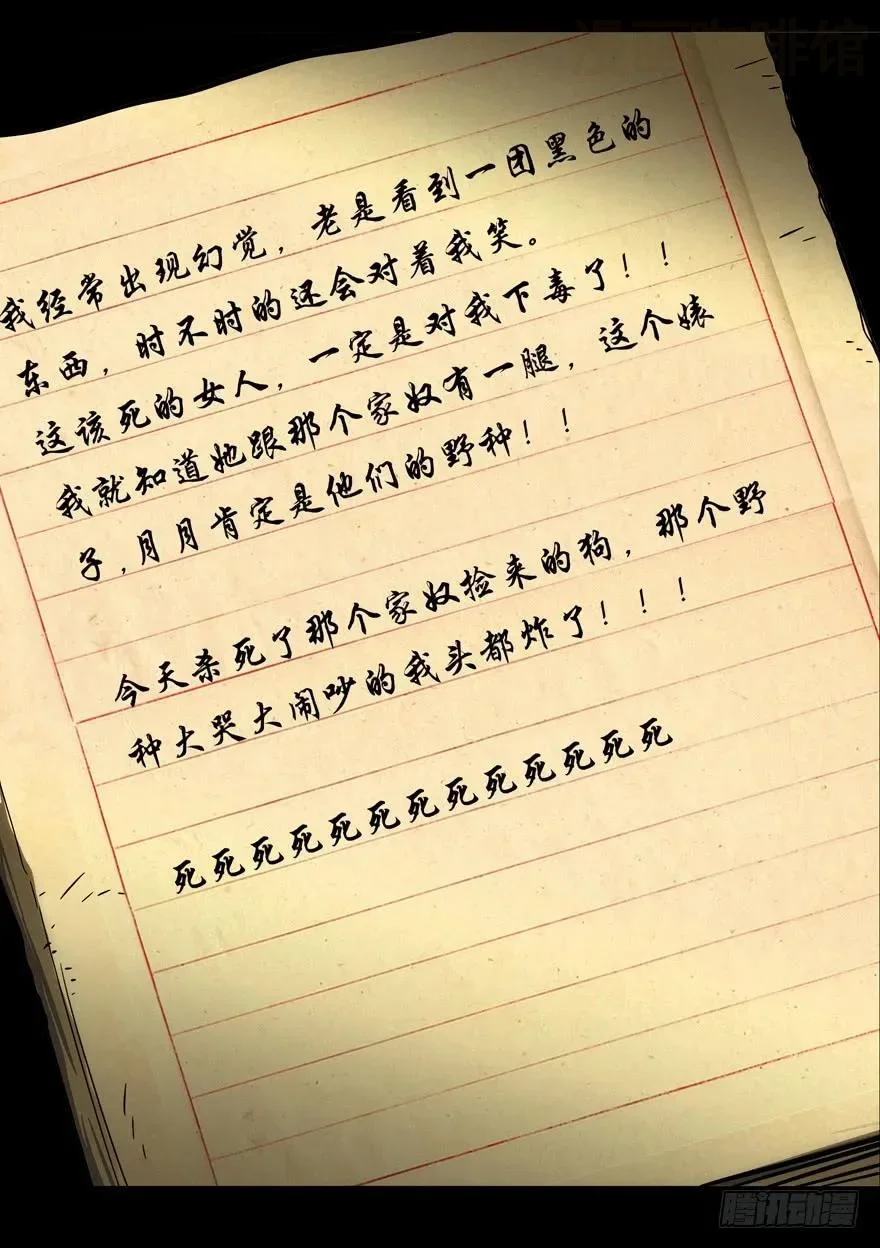 漫画咖啡馆
我经常出现幻觉，老是看到一团黑色的
东西，时不时的还会对着我笑。
这该死的女人，一定是对我下毒了！！
我就知道她跟那个家奴有一腿，这个婊
子，月月肯定是他们的野种！！
今天杀死了那个家奴捡来的狗，那个野
种大哭大闹吵的我头都炸了！！！
死死死死死死死死死死死死死
腾讯动漫